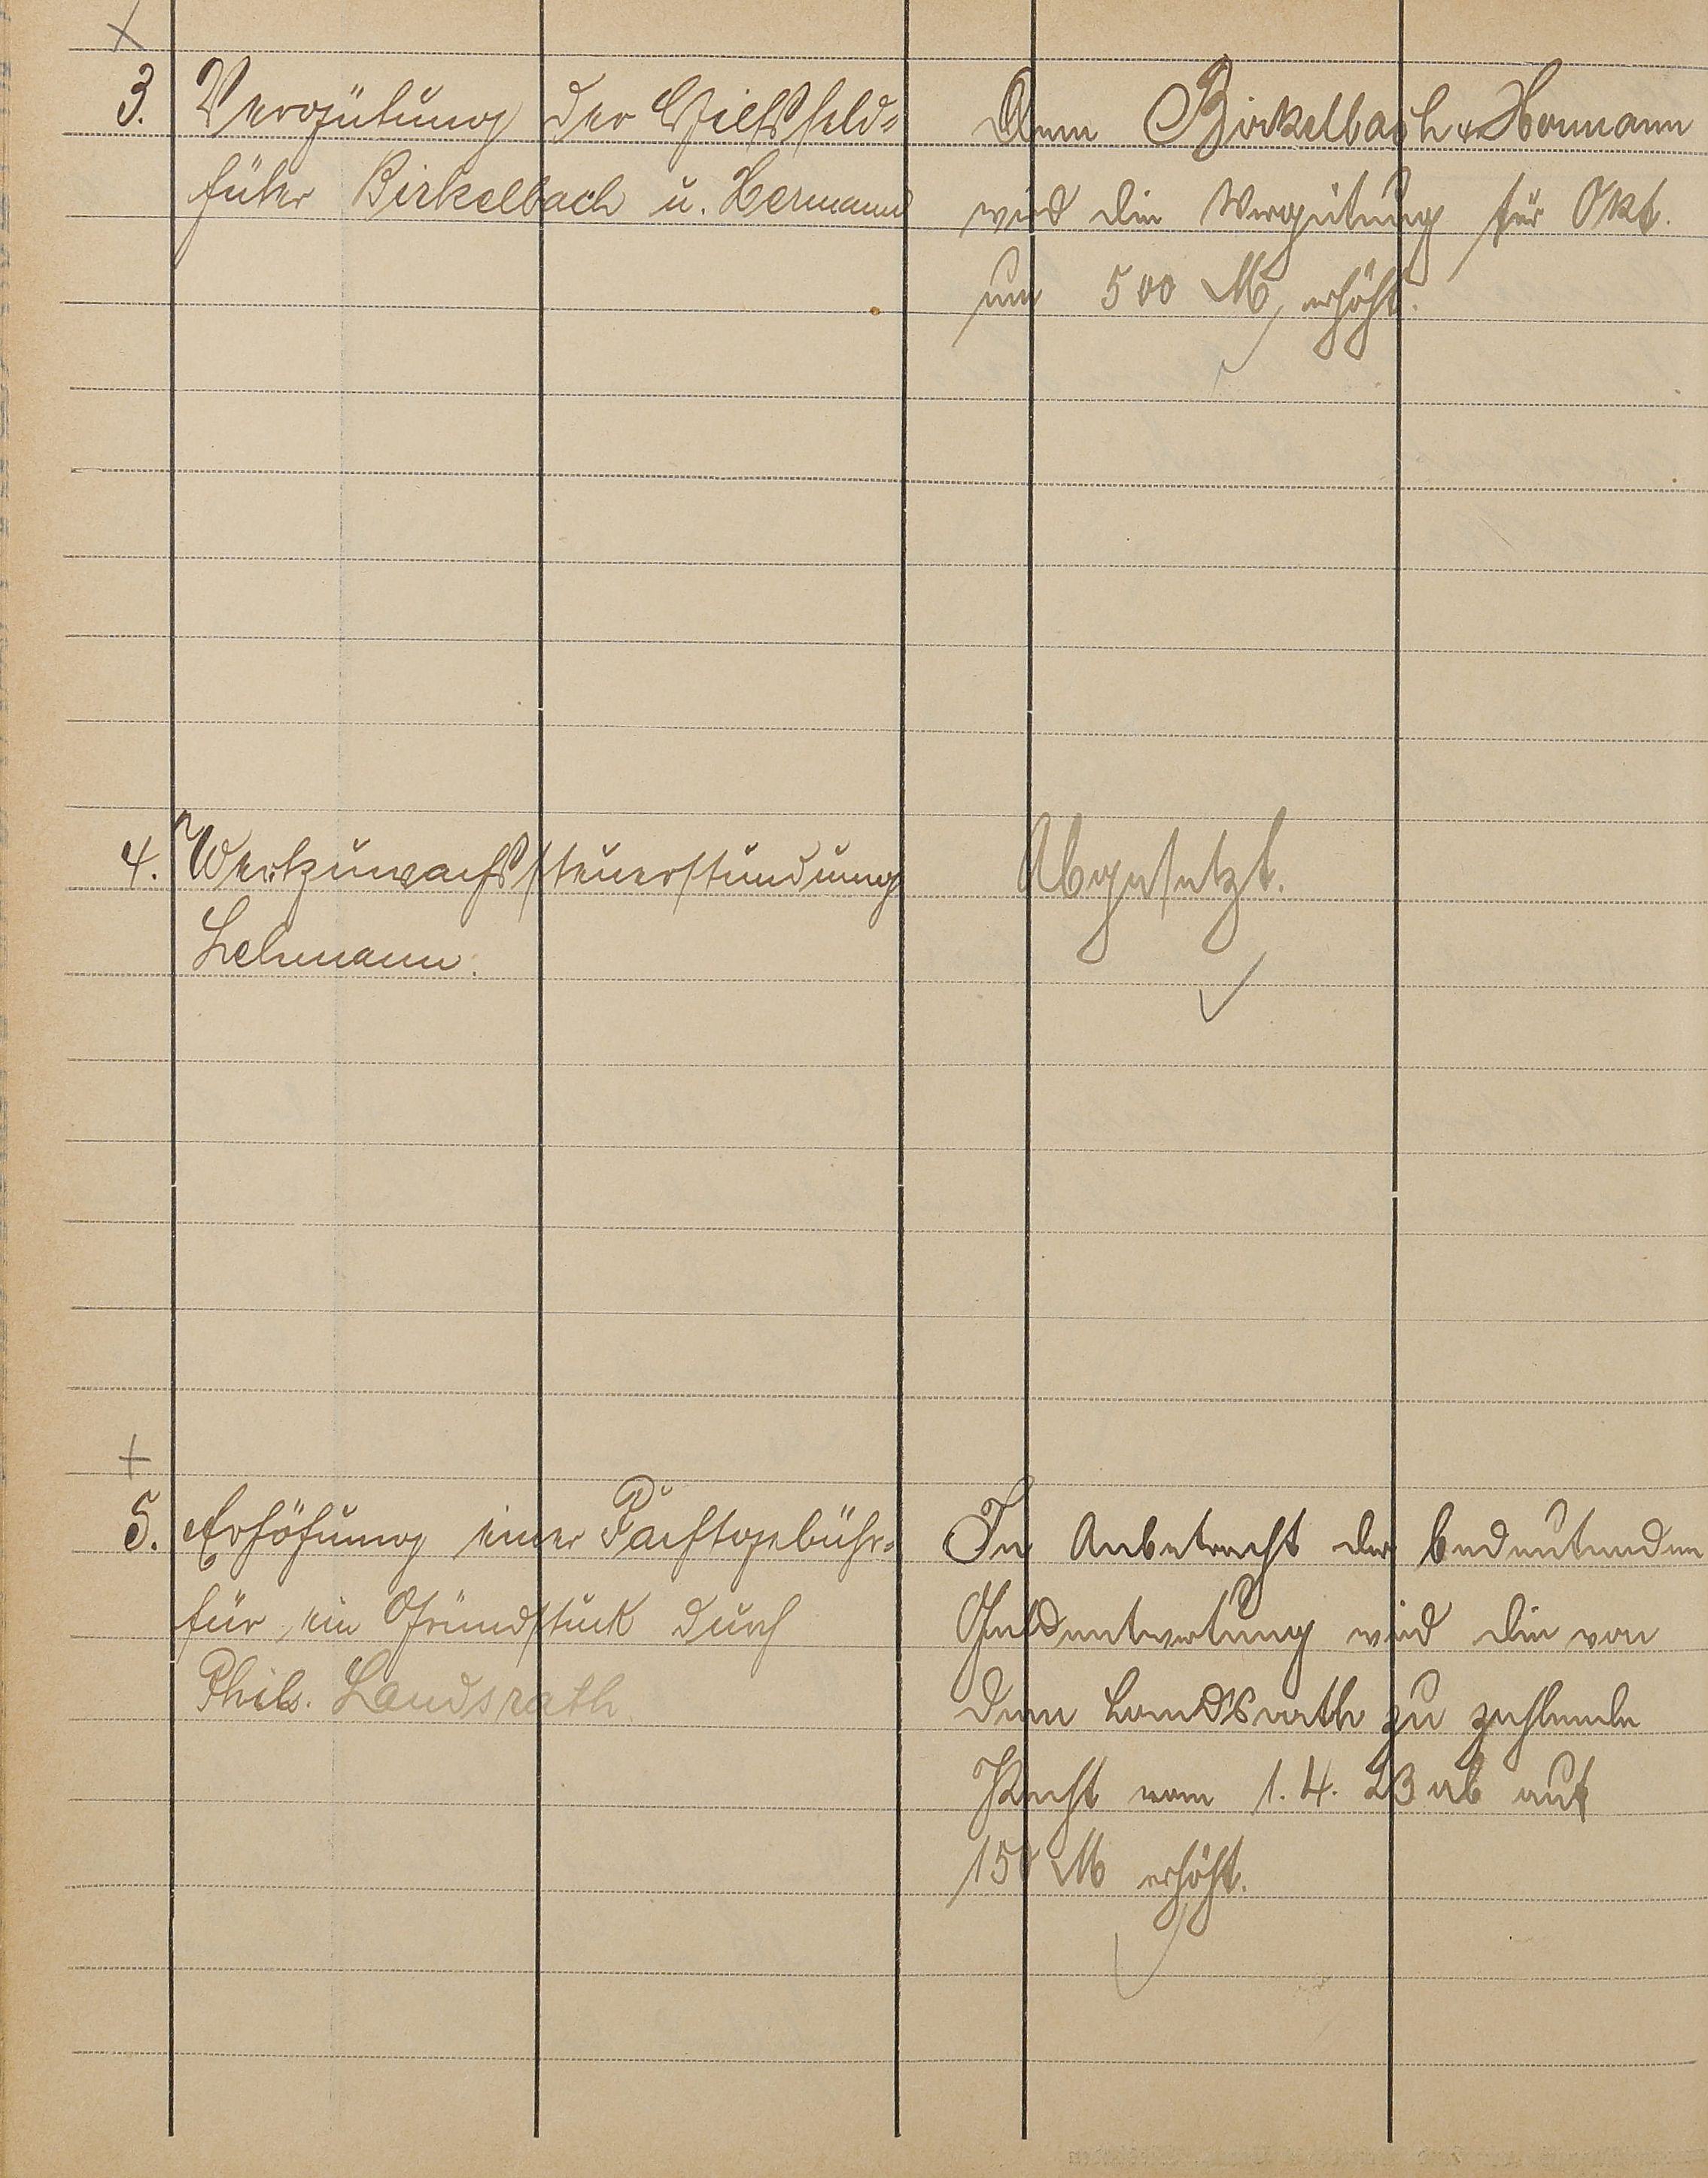 3. Vergütung der Hilfsfeld-
hüter Birkelbach u. Hermann
Dem Birkelbach u. Hermann
wird die Vergütung für Okt.
um 500 M erhöht.
4. Wertzuwachssteuerstundung
Lehmann.
Abgesetzt.
5. Erhöhung einer Pachtgebühr
für ein Grundstück durch
Phil. Landsrath.
In Anbetracht der bedeutenden
Geldentwertung wird die von
dem Landsrath zu zahlende
Pacht vom 1. 4. 23 ab auf
150 M erhöht.